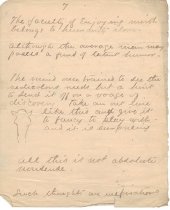 7
The faculty of enjoying mirth
belongs to humanity alone.
although the average man may
possess a fund of latent humor.
The mind once trained to see the
ridiculous need but a hint
to send it off on a voyage of
discovery. Take an
like this and give it
to fancy to play with
and it is surprising
all this is not absolute
Such thoughts are